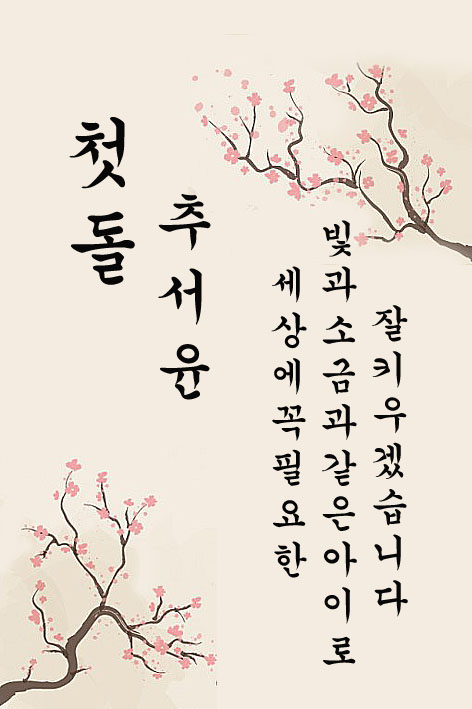 첫돌
추서윤
세상에꼭필요한
빛과소금과같은아이로
잘키우겠습니다